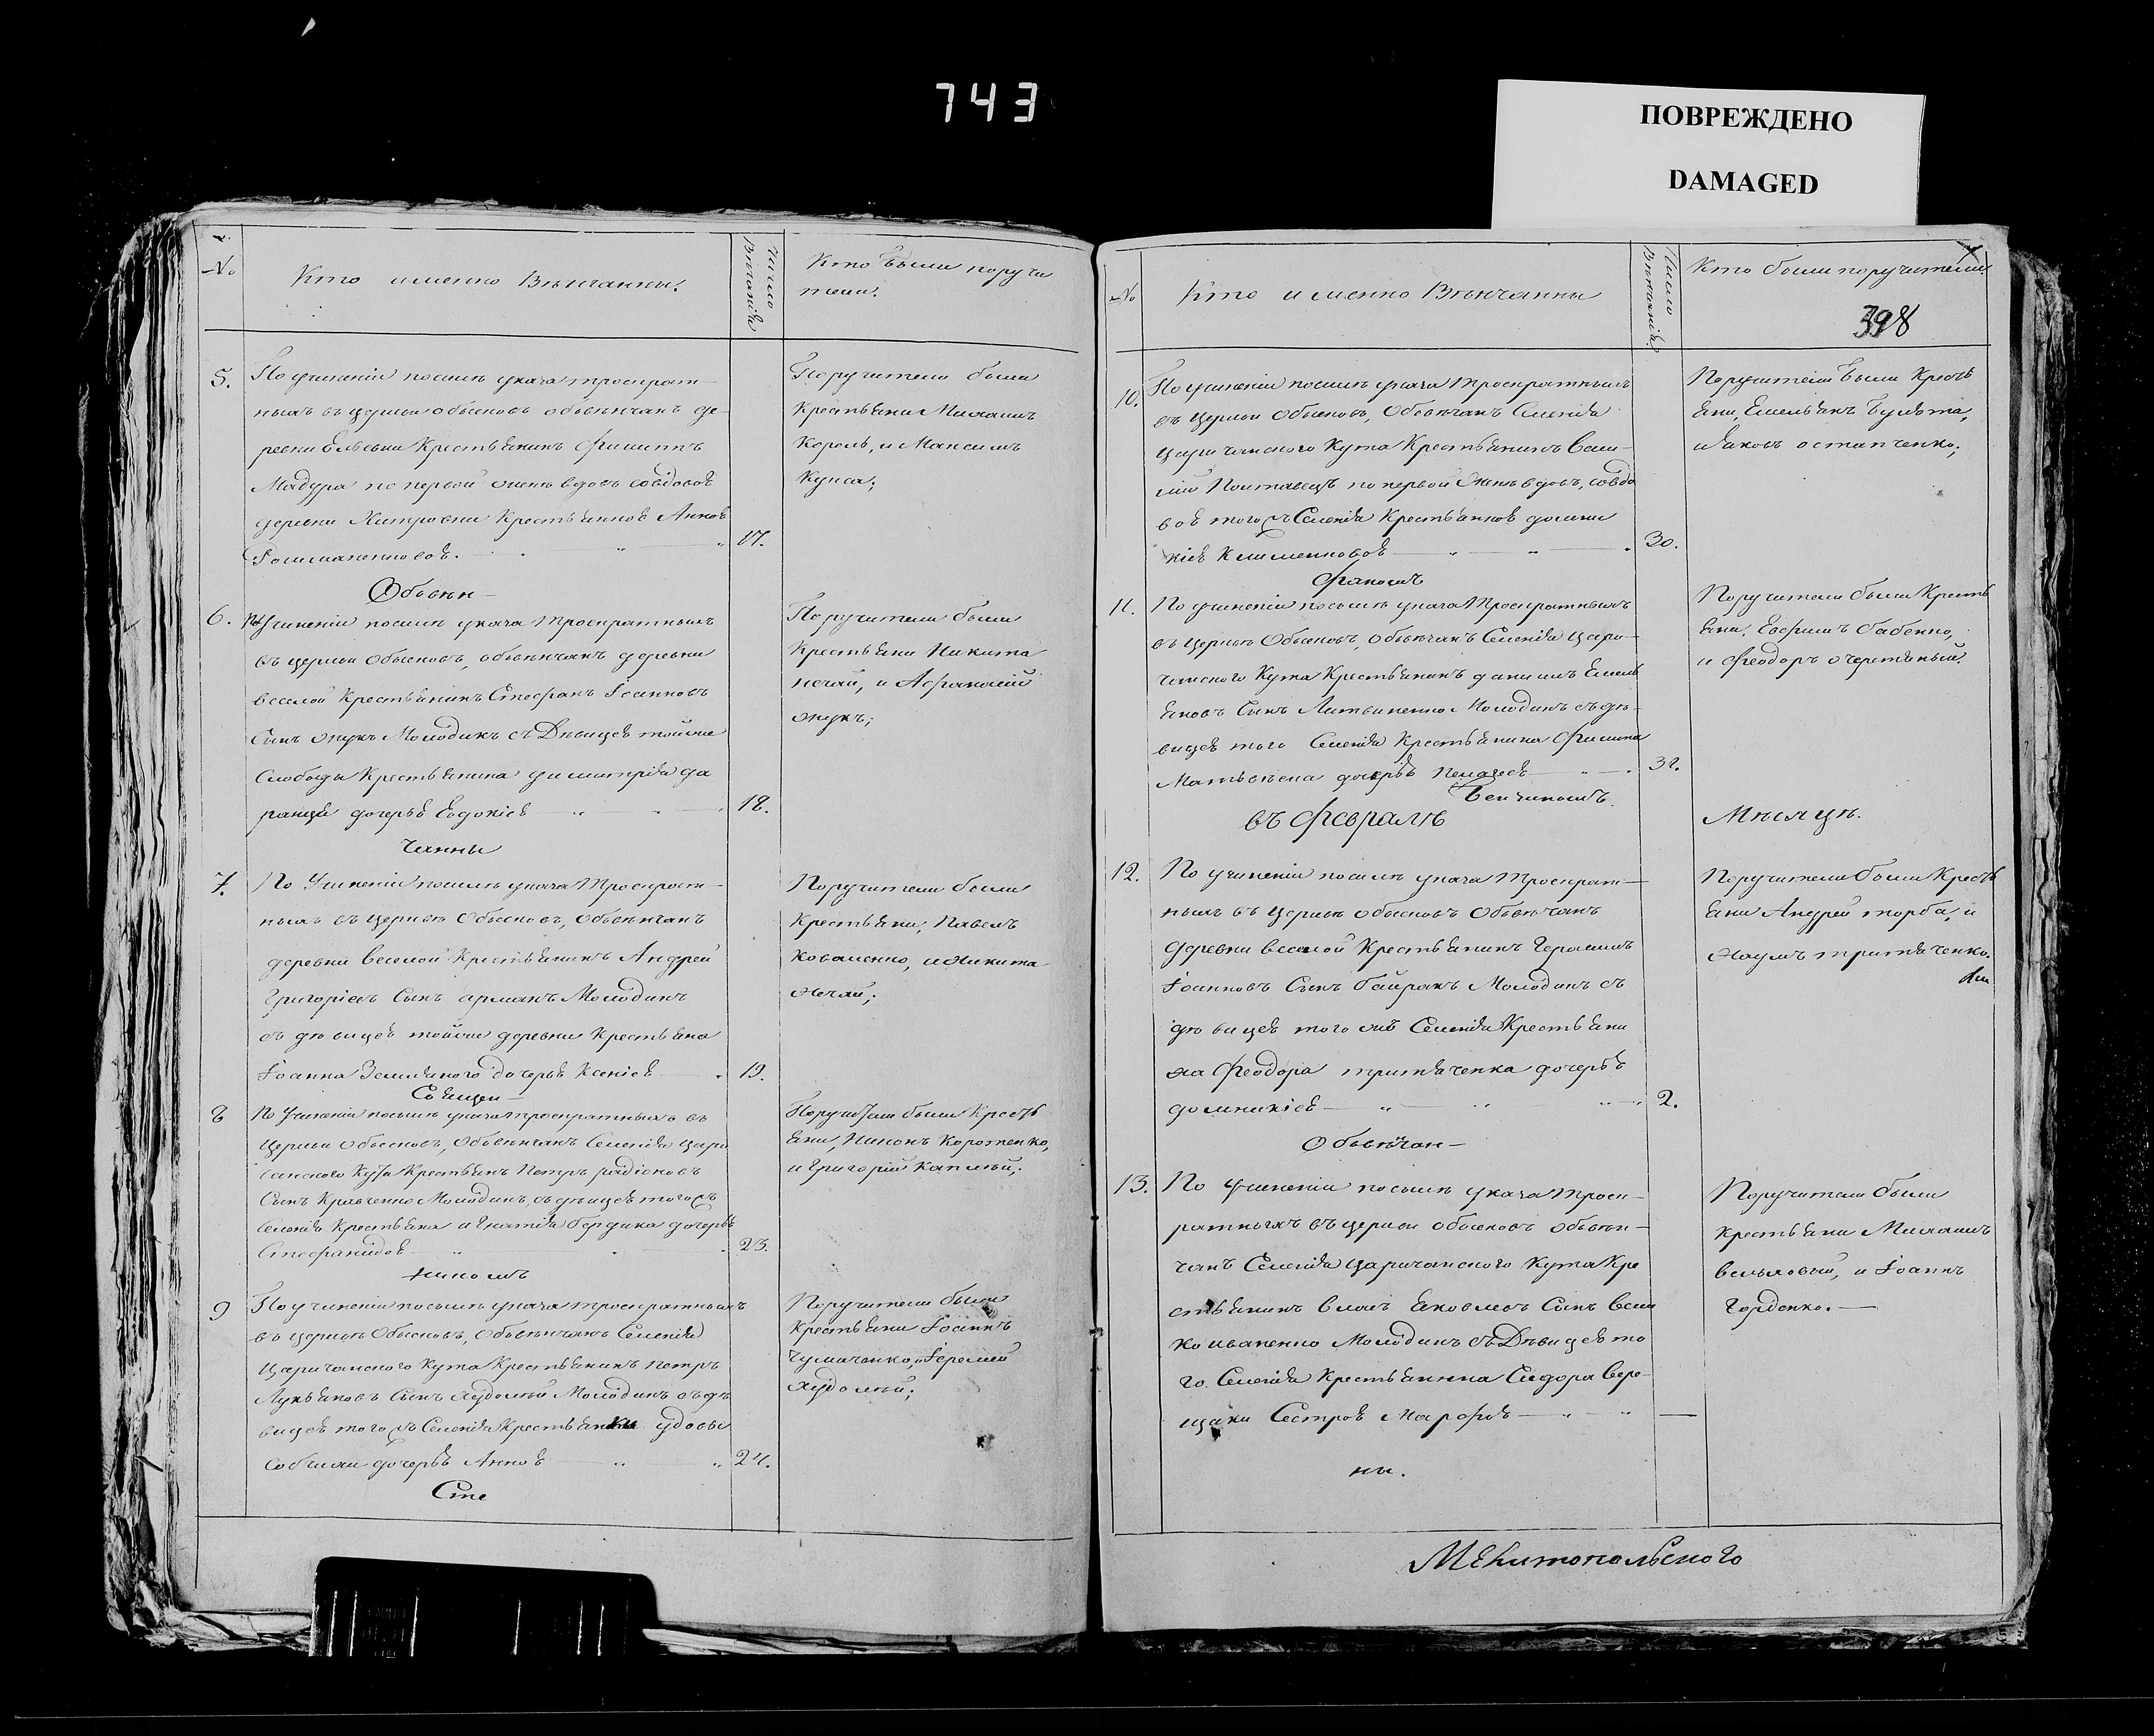 743
ПОВРЕЖДЕНО
DAMAGED
№
Кто именно Вѣнчанны.
Число Вѣнчанія
Кто были поручи
тели.
5.
По учиненіи посилѣ указа троекрат-
ныхъ въ церкви обысковъ обвѣнчанъ де-
ревни Крестьянинъ Филиппъ
Мадура по первой женѣ вдовъ совдовоѣ
деревни Крестьянкоѣ Анноѣ
17.
Поручители были
Крестьяни Михаилъ
Король, и Максимъ
Куцса;
Обвѣн-
6.
По Учиненіи посилѣ указа троекратныхъ
въ церкви обысковъ, обвѣнчанъ деревни
веселой Крестьянинъ Стефанъ Іоанновъ
Сынъ онукъ Молодикъ съ Дѣвицеѣ тойже
Слободы Крестьянина димитрія да
ранци дочерьѣ Евдокіеѣ
18.
Поручители были
Крестьяни Никита
нечай, и Афанасій
онукъ;
чанны
7.
По Учиненіи посилѣ указа троекрат-
ныхъ въ церквѣ Обысковъ, Обвѣнчанъ
деревни веселой Крестьянинъ Андрей
Григоріевъ Сынъ арманъ Молодикъ
съ дѣвицеѣ тойже деревни Крестьяна
Іоанна Земляного дочерьѣ Ксеніеѣ
19.
Поручители были
Крестьяни, Павелъ
Коваленко, и Никита
Нечай;
Священ-
8
По Учиненіи посилѣ указа троекратныхъ въ
Церкви Обысковъ, Обвѣнчанъ Селенія Цари
чанского Кута Крестьянъ Петръ радіоновъ
Сынъ Кравченко Молодикъ, съ дѣвицеѣ тогожъ
Селенія Крестьяна игнатія бердика дочерьѣ
Стефанидоѣ
23.
Поручители были Кресть
яни, Никонъ Коротенко,
и Григорій Каплый;
никомъ
9
По учиненіи посилѣ указа троекратныхъ
въ церквѣ Обысковъ, Обвѣнчанъ Селенія
Царичанского Кута Крестьянинъ петръ
Лукьяновъ Сынъ худолѣй Молодикъ съ дѣ
вицеѣ тогожъ Селенія Крестьянки удовы
дочерьѣ Анноѣ
24.
Поручители были
Крестьяни Іоаннъ
Чумаченко, и Іеремей
худолѣй;
Сте
№
Кто именно Вѣнчанны
Число Вѣнчанія.
Кто были поручители
398
10.
По учиненіи посилѣ указа троекратныхъ
въ Церкви Обысковъ, Обвѣнчанъ Селенія
царичанского Кута Крестьянинъ Васи-
лій Полтавецъ по первой Женѣ вдовъ, совдо
воѣ тогожъ Селенія Крестьянкоѣ домни
кіеѣ Клименковоѣ
30.
Поручители были Кресть
яни, Емельянъ Булата,
и Яковъ остапченко;
Фаномъ
11.
По учиненіи посилѣ указа троекратныхъ
въ церквѣ Обысковъ, обвѣнчанъ Селенія цари-
чанского Кута Крестьянинъ даніилъ Емель
яновъ Сынъ Литвиненко Молодикъ съ дѣ-
вицеѣ того Селенія Крестьянина Филипа
Матвѣенка дочерьѣ пелагеѣ
31.
Поручители были Кресть
яни, Евфимъ бабенко,
и феодоръ очеретяный.
въ Февралѣ
Мѣсяцѣ.
12.
По учиненіи посилѣ указа троекрат-
ныхъ въ церквѣ обысковъ Обвѣнчанъ
деревни веселой Крестьянинъ Герасимъ
Іоанновъ Сынъ байракъ Молодикъ съ
дѣвицеѣ того жѣ Селенія Крестьяни
на Феодора притяченка дочерьѣ
домникіеѣ
2.
Поручители были Кресть
яни Андрей торба, и
Наумъ притяченко.
Обвѣнчан-
13.
По учиненіи посилѣ указа троек-
ратныхъ въ церкви обысковъ обвѣн-
чанъ Селенія царичанского Кута Кре
стьянинъ власъ Яковлевъ Сынъ Вели
коиваненко Молодикъ съ Дѣвицеѣ то
го. Селенія Крестьянина Сидора Вере-
щаки Сестроѣ Марфоѣ
Поручители были
Крестьяни Михаилъ
и Іоаннъ
Горденко.
ны.
Мелитопольского